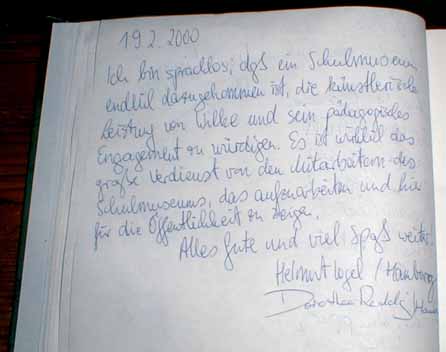 19.2.2000
Ich bin sprachlos, daß ein Schulmuseum
endlich dazugekommen ist, die künstlerische
Leistung von Wilke und sein pädagogisches
Engagement zu würdigen. Es ist wirklich das
große Verdienst von den Mitarbeitern des
Schulmuseums, das aufzuarbeiten und hier
für die Öffentlichkeit zu zeigen.
Alles Gute und viel Spaß weiter.
Helmut / Hamburg
Dorothea